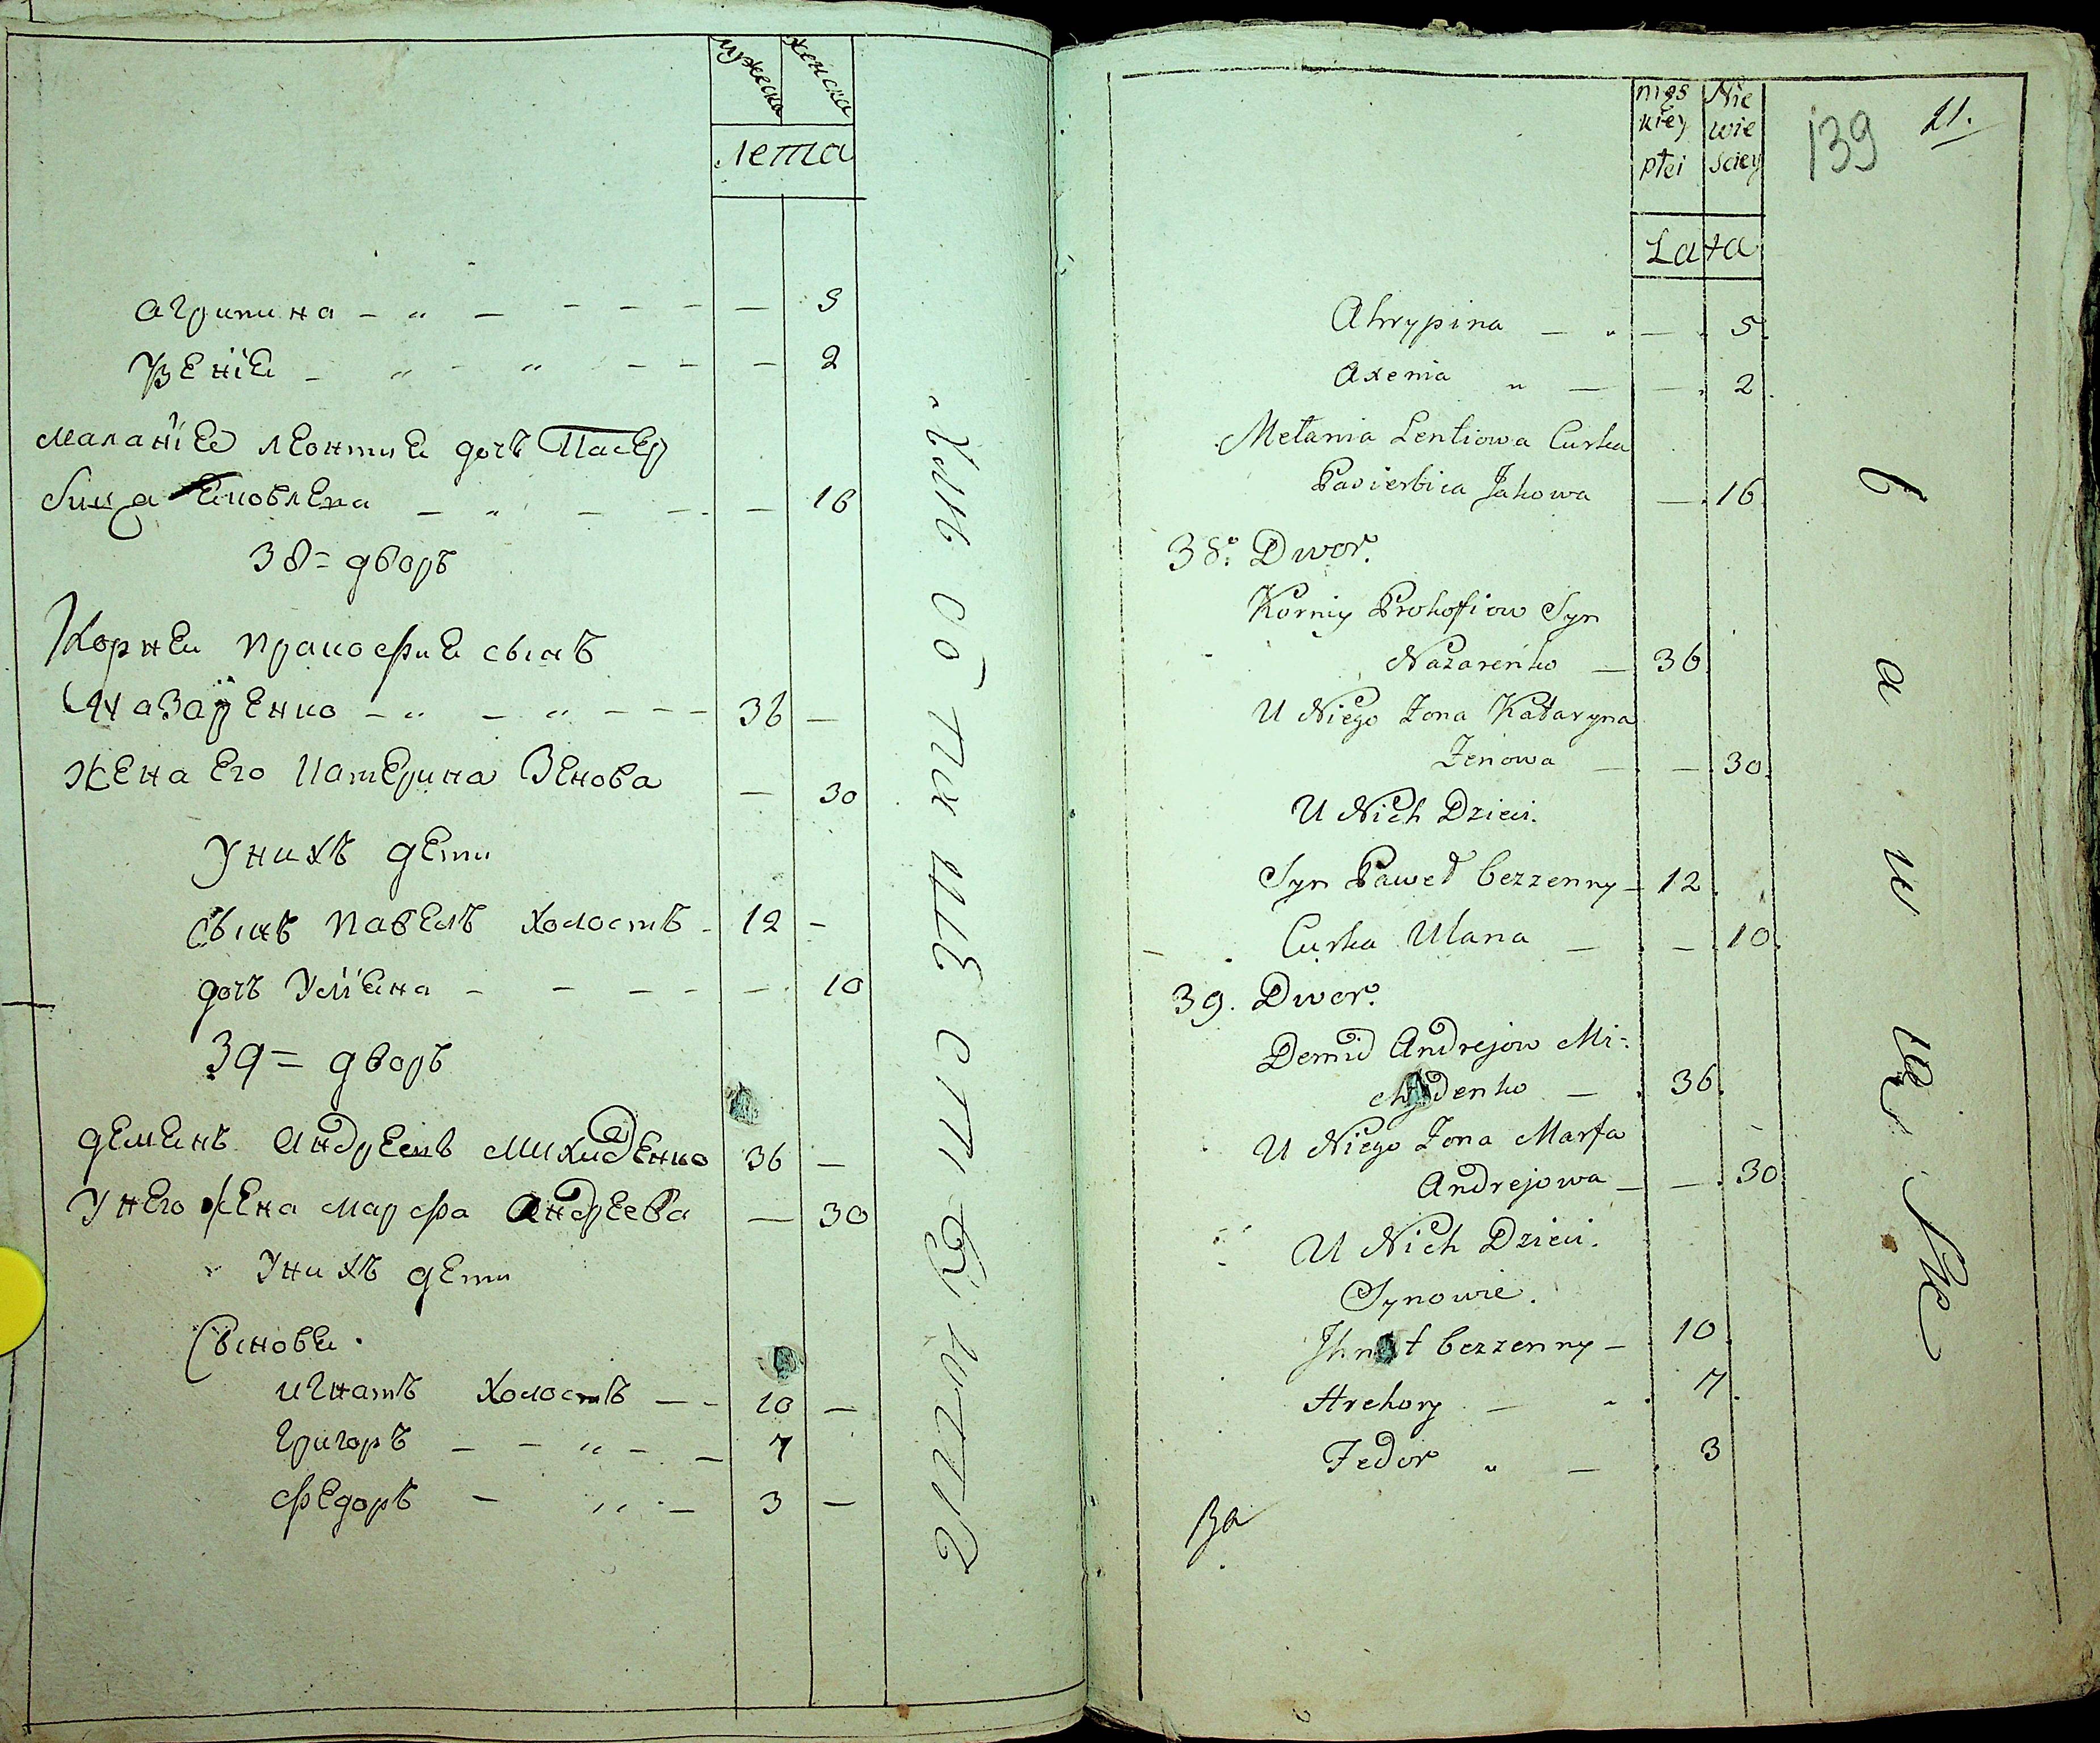 мужеска женска
лета
агрипина - „ - - - - - 5
- „ - „ - - - 2
маланіе леонтие дочь Пасер
бица Ековлева - „ - - - 16
38= дворъ
Корнеи прокофие сынъ
Назаренко - „ - „ - - - 36 -
жена его Катерина Зенова - 30
У нихъ дети
сынъ павелъ холостъ - 12 -
дочь Улiена - - - - - 10
39= дворъ
Андреевъ михиденко 36 -
У него жена марфа Андреева - 30
У нихъ дети
Сынове.
игнатъ холостъ - - 10 -
григоръ - - „ - - 7
федоръ - „ - 3 -
męs kiey płei Nie wie sciey
Lata
139 21.
Ahrypina - „ - 5.
Axenia „ - - 2.
Mełania Lentiowa Curka
Pasierbica Jakowa - 16.
38. Dwor.
Korniy Prokoffiow Syn
Nazarenko - 36.
U Niego Zona Kataryna
Zenowa - - 30.
U Nich Dzieci.
Syn Paweł bezzenny - 12.
Curka Ulana - - 10.
39. Dwor.
Demid Andrejow Mi=
chydenko - 36.
U Niego Zona Marfa
Andrejowa - - 30.
U Nich Dzieci.
Synowie.
Ihnat bezzenny - 10.
Hrehory - „ 7.
Fedor „ - 3